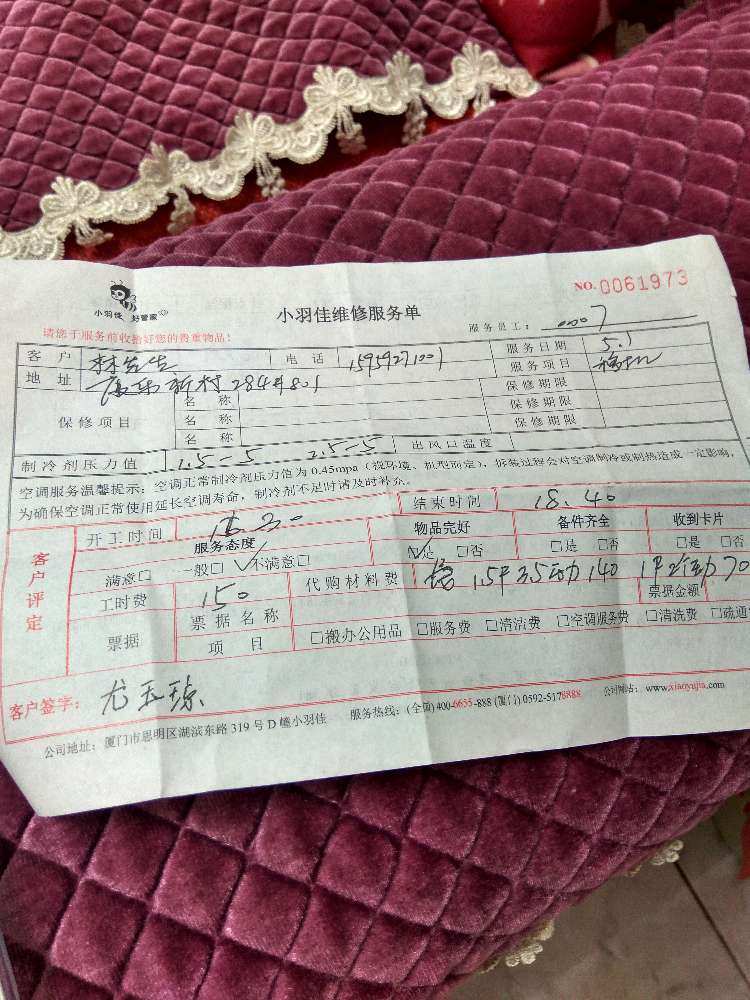 NO.0061973
小羽佳 好管家
小羽佳维修服务单
服务员工: 0007
请您于服务前收拾好您的贵重物品!
客户 林先生 电话 15959271001 服务日期 5.1
地址 新村284#801 服务项目 移机
保修项目 名称 保修期限
名称 保修期限
名称 保修期限
制冷剂压力值 2.5-5 出风口温度
空调服务温馨提示:空调正常制冷剂压力值为0.45mpa(视环境、机型而定),拆装过程会对空调制冷或制热造成一定影响,
为确保空调正常使用延长空调寿命,制冷剂不足时请及时补充。
客户评定
开工时间 16.30 结束时间 18.40
服务态度 物品完好 备件齐全 收到卡片
满意□ 一般□ 不满意□ ☑是 □否 □是 □否 □是 □否
工时费 150 代购材料费 1.5P 3.5 140 1P 2 70
票据 票据名称 票据金额
项目 □搬办公用品 □服务费 □清洁费 □空调服务费 □清洗费 □疏通
客户签字: 尤玉琼
公司地址:厦门市思明区湖滨东路319号D幢小羽佳 服务热线:(全国)400-6655-888 (厦门)0592-5178888 公司网站:www.xiaoyujia.com